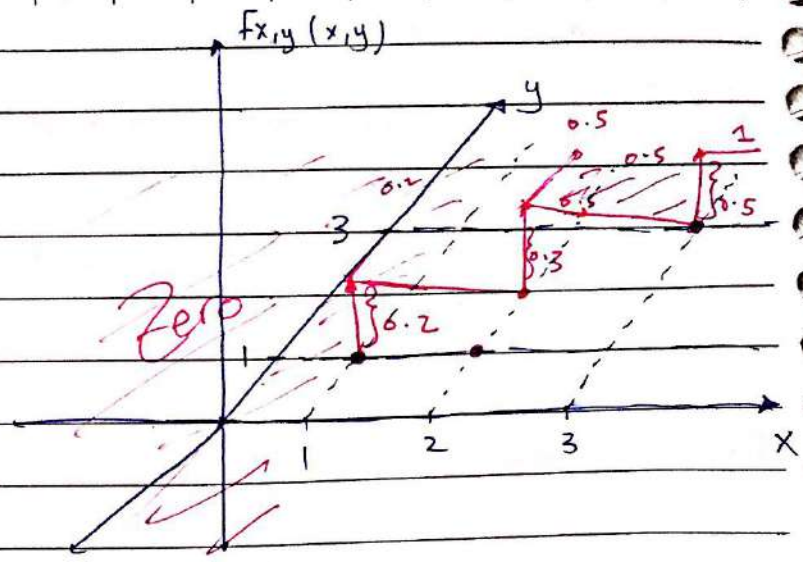 Fx,y (x,y)
y
0.5
1
0.5
0.2
0.5
0.5
3
0.3
Zero
0.2
1
1 2 3
X